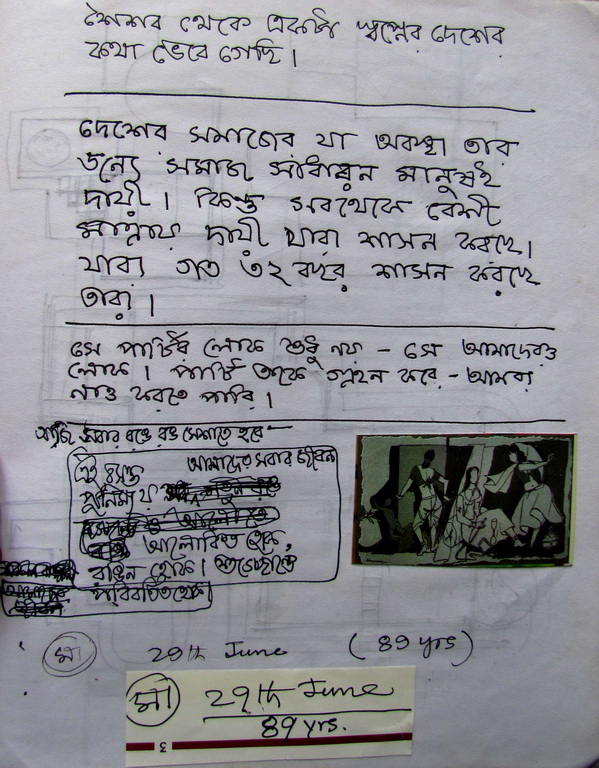 শৈশব থেকে একটা স্বপ্নের দেশের
কথা ভেবে গেছি।
দেশের সমাজের যা অবস্থা তার
জন্যে সমাজ সাধারন মানুষই
দায়ী। কিন্তু সবথেকে বেশী
মাত্রায় দায়ী যারা শাসন করছে।
যারা গত ৩২ বছর শাসন করছে
তারা।
সে পার্টির লোক শুধু নয় – সে আমাদেরও
লোক। পার্টি তাকে গ্রহন করে – আমরা
নাও করতে পারি।
আজি সবার রঙে রঙ মেশাতে হবে —
এই বসন্ত আমাদের সবার জীবন
পূর্নিমা য়
আলোকিত হোক,
রঙিন হোক। শুভেচ্ছাতে
পরিবর্তিত হোক।
মা 29th June (89 yrs)
মা 29th June
89 yrs.
৩